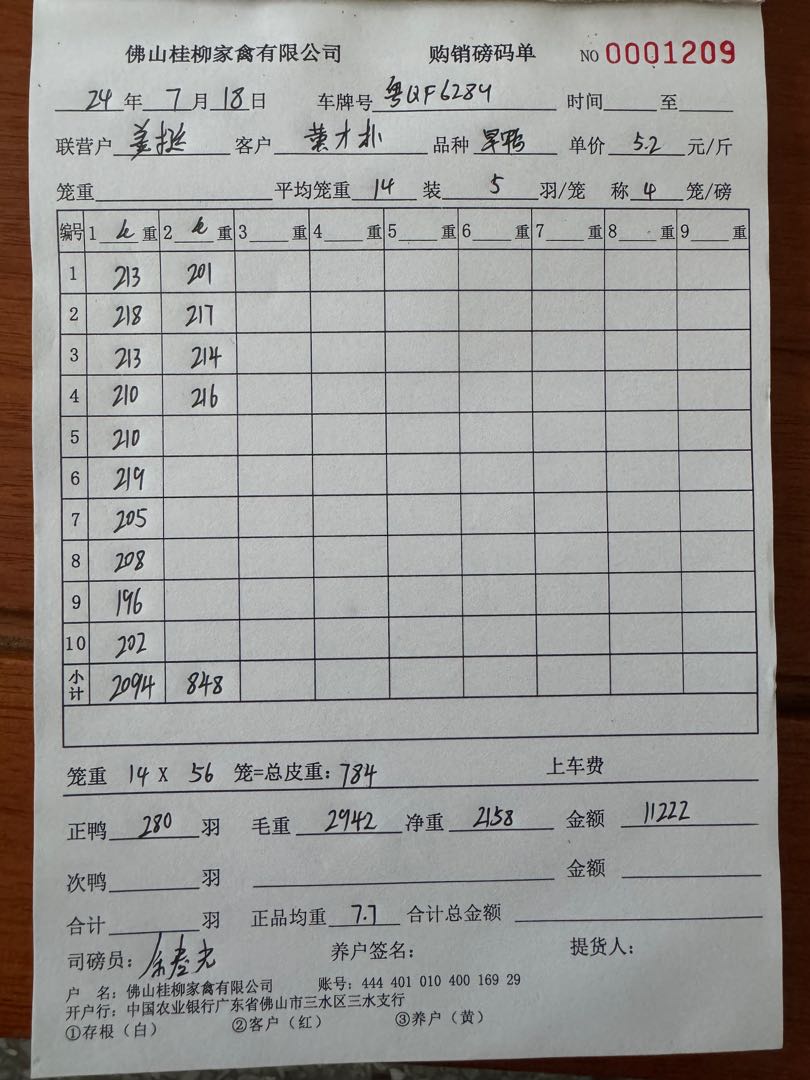 佛山桂柳家禽有限公司 购销磅码单 NO 0001209
24年7月18日 车牌号粤QF6284 时间 至
联营户姜挺 客户叶才朴 品种旱鸭 单价5.2元/斤
笼重 平均笼重14装5羽/笼 称4笼/磅
编号 1 重 2 重 3 重 4 重 5 重 6 重 7 重 8 重 9 重
1 213 201
2 218 217
3 213 214
4 210 216
5 210
6 219
7 205
8 208
9 196
10 202
小计 2094 848
笼重 14 X 56 笼=总皮重:784 上车费
正鸭280羽 毛重2942净重2158 金额11222
次鸭 羽 金额
合计 羽 正品均重7.7合计总金额
司磅员: 养户签名: 提货人:
户 名:佛山桂柳家禽有限公司 账号:444 401 010 400 169 29
开户行:中国农业银行广东省佛山市三水区三水支行
①存根(白) ②客户(红) ③养户(黄)